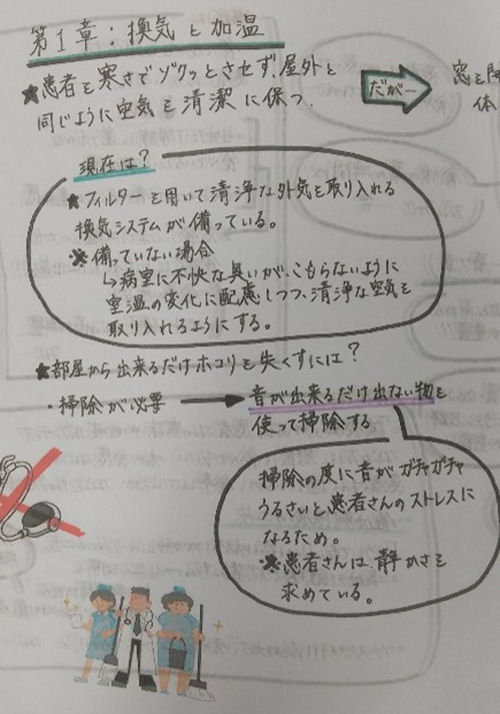 第1章:換気と加温
★患者を寒さでゾクッとさせず、屋外と
同じように空気を清潔に保つ.
だが…
窓を
体
現在は?
★フィルターを用いて清浄な外気を取り入れる
換気システムが備っている。
※備っていない場合
↳病室に不快な臭いが、こもらないように
室温の変化に配慮しつつ、清浄な空気を
取り入れるようにする。
★部屋から出来るだけホコリを失くすには?
・掃除が必要 → 音が出来るだけ出ない物を
使って掃除する
掃除の度に音がガチャガチャ
うるさいと患者さんのストレスに
なるため。
※患者さんは静かさを
求めている。